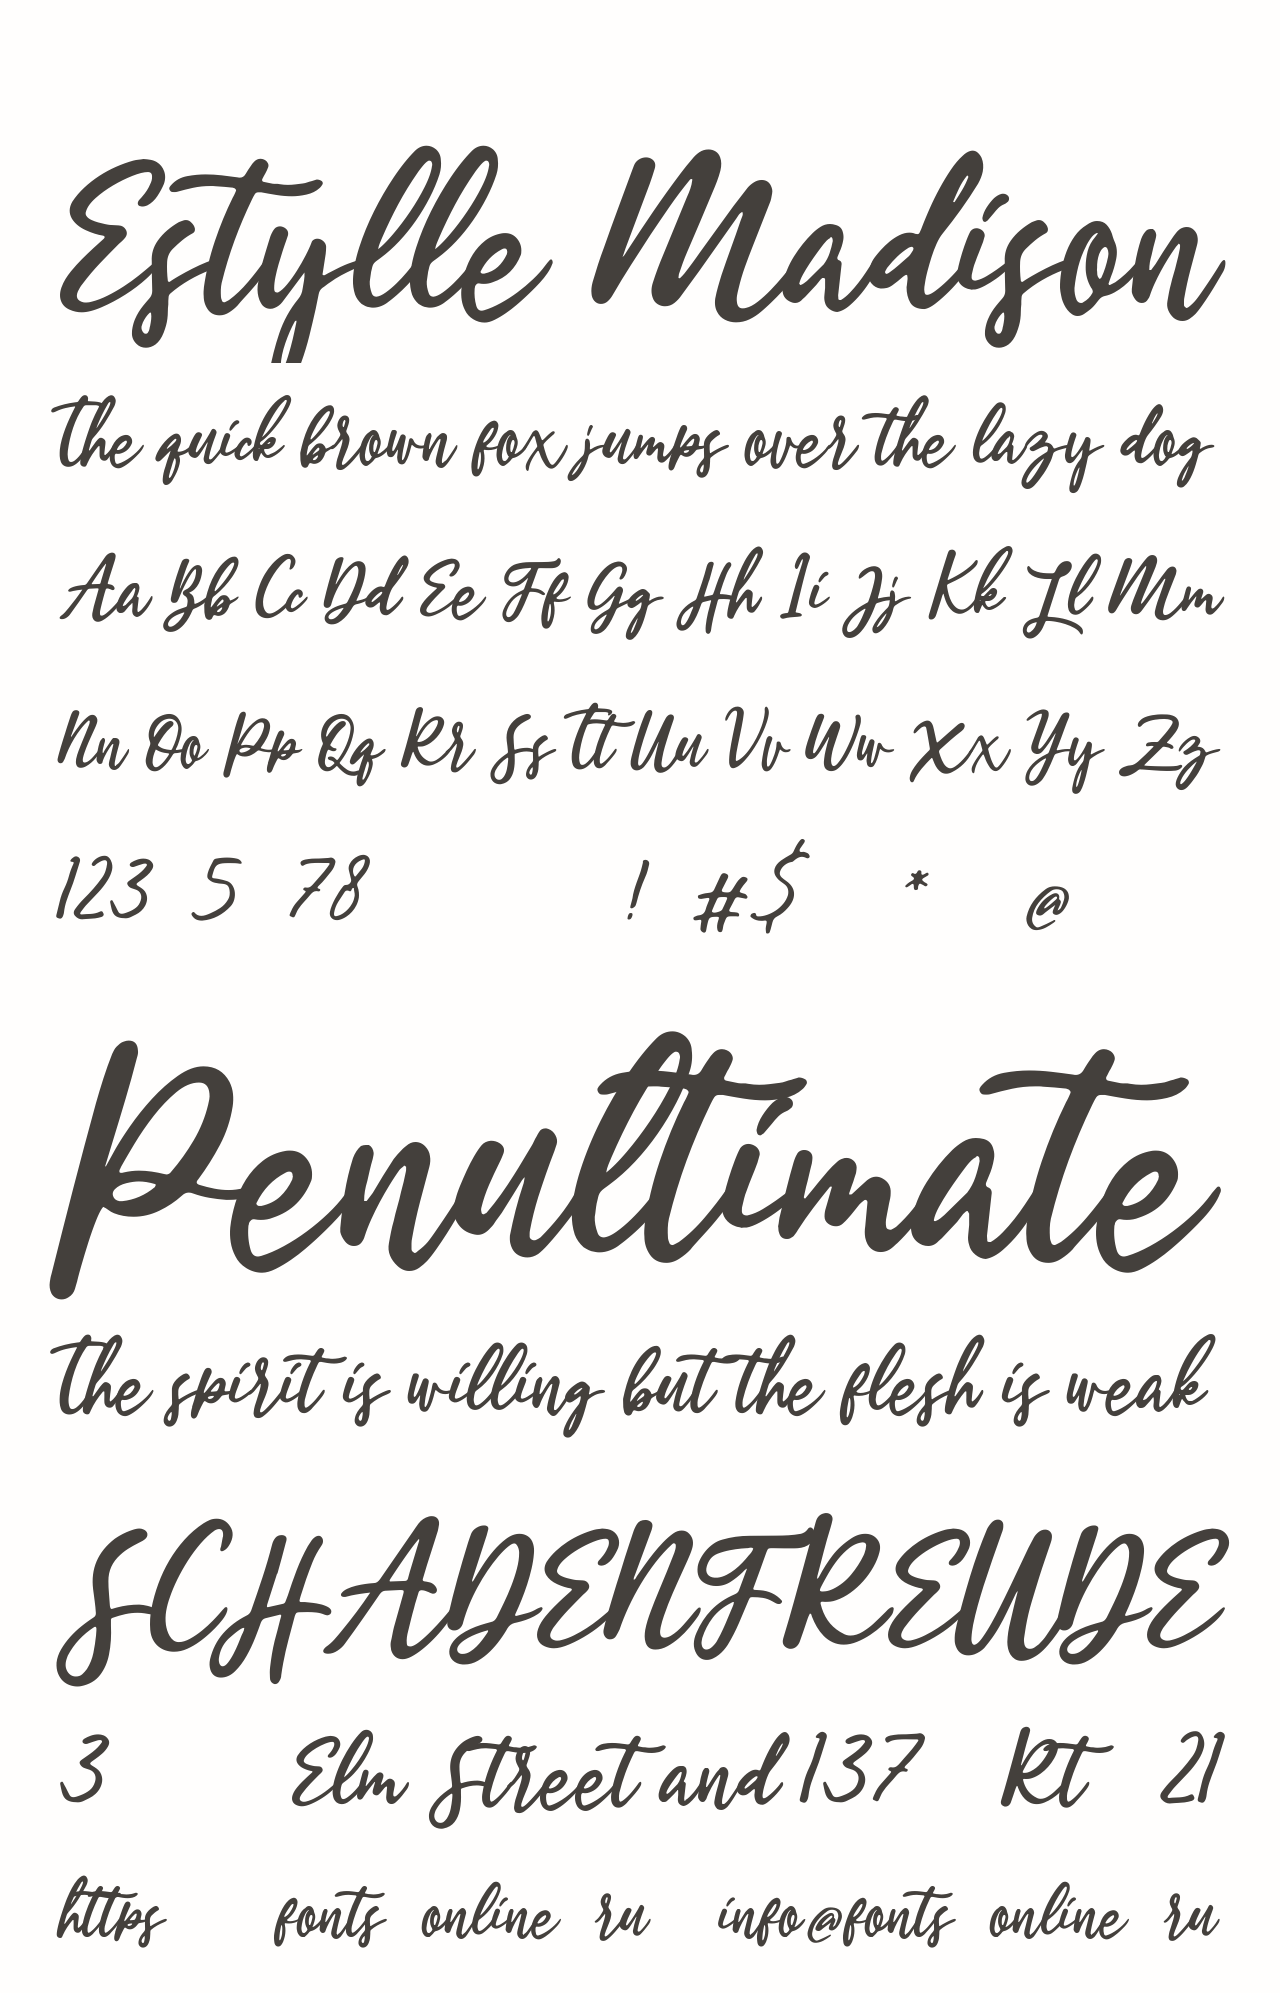 Estylle Madison
The quick brown fox jumps over the lazy dog
Aa Bb Cc Dd Ee Ff Gg Hh Ii Jj Kk Ll Mm
Nn Oo Pp Qq Rr Ss Tt Uu Vv Ww Xx Yy Zz
123 5 78 ! #$ * @
Penultimate
The spirit is willing but the flesh is weak
SCHADENFREUDE
3 Elm Street and 137 Rt 21
https fonts online ru info@fonts online ru